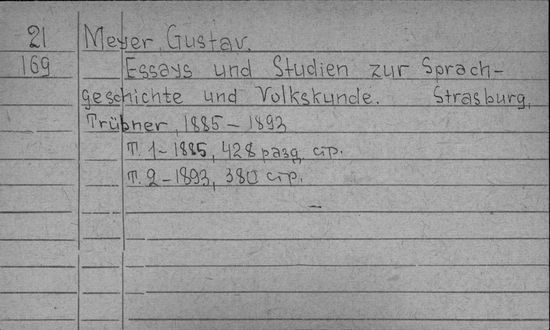 21 Meyer, Gustav.
169 Essays und Studien zur Sprach-
geschichte und Volkskunde. Strasburg,
Trübner, 1885-1893
Т. 1-1885, 428 разд. стр.
Т. 2-1893, 380 стр.